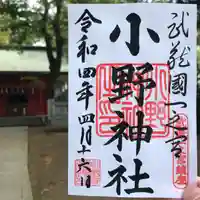 武蔵國一之宮
小野神社
令和四年四月十六日